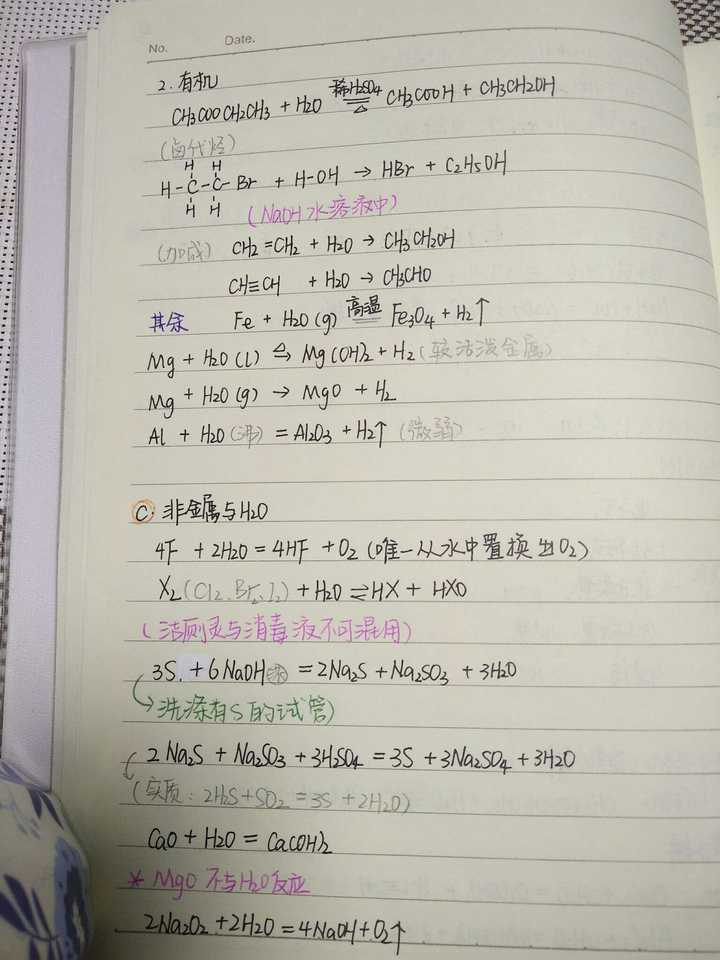 No.
Date.
2. 有机
CH3COOCH2CH3 + H2O 稀H2SO4 ⇌ △ CH3COOH + CH3CH2OH
(卤代烃)
H H
H-C-C-Br + H-OH → HBr + C2H5OH
H H
(NaOH水溶液中)
(加成) CH2=CH2 + H2O → CH3CH2OH
CH≡CH + H2O → CH3CHO
其余 Fe + H2O(g) 高温 Fe3O4 + H2↑
Mg + H2O(l) △ Mg(OH)2 + H2 (较活泼金属)
Mg + H2O(g) → MgO + H2
Al + H2O(沸) = Al2O3 + H2↑ (微弱)
C. 非金属与H2O
4F + 2H2O = 4HF + O2 (唯一从水中置换出O2)
X2(Cl2.Br2.I2) + H2O ⇌ HX + HXO
(洁厕灵与消毒液不可混用)
3S + 6NaOH = 2Na2S + Na2SO3 + 3H2O
→洗涤有S的试管)
2Na2S + Na2SO3 + 3H2SO4 = 3S + 3Na2SO4 + 3H2O
(实质: 2H2S+SO2 = 3S + 2H2O)
CaO + H2O = Ca(OH)2
* MgO 不与H2O反应
2Na2O2 + 2H2O = 4NaOH + O2↑